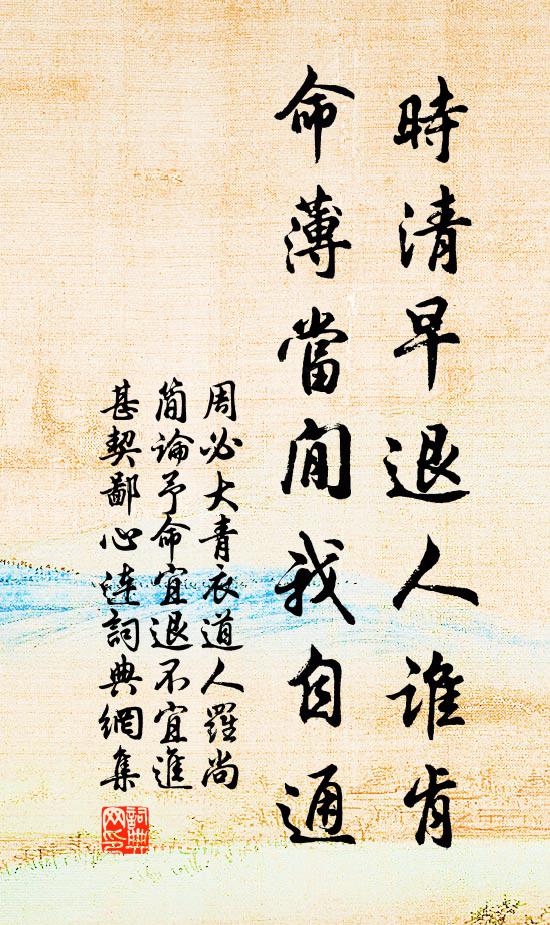 時清早退人誰肯
命薄當閒我自通
周必大青衣道人羅尚
簡論予命宜退不宜進
甚契鄙心連詞典網集
詞典
网印